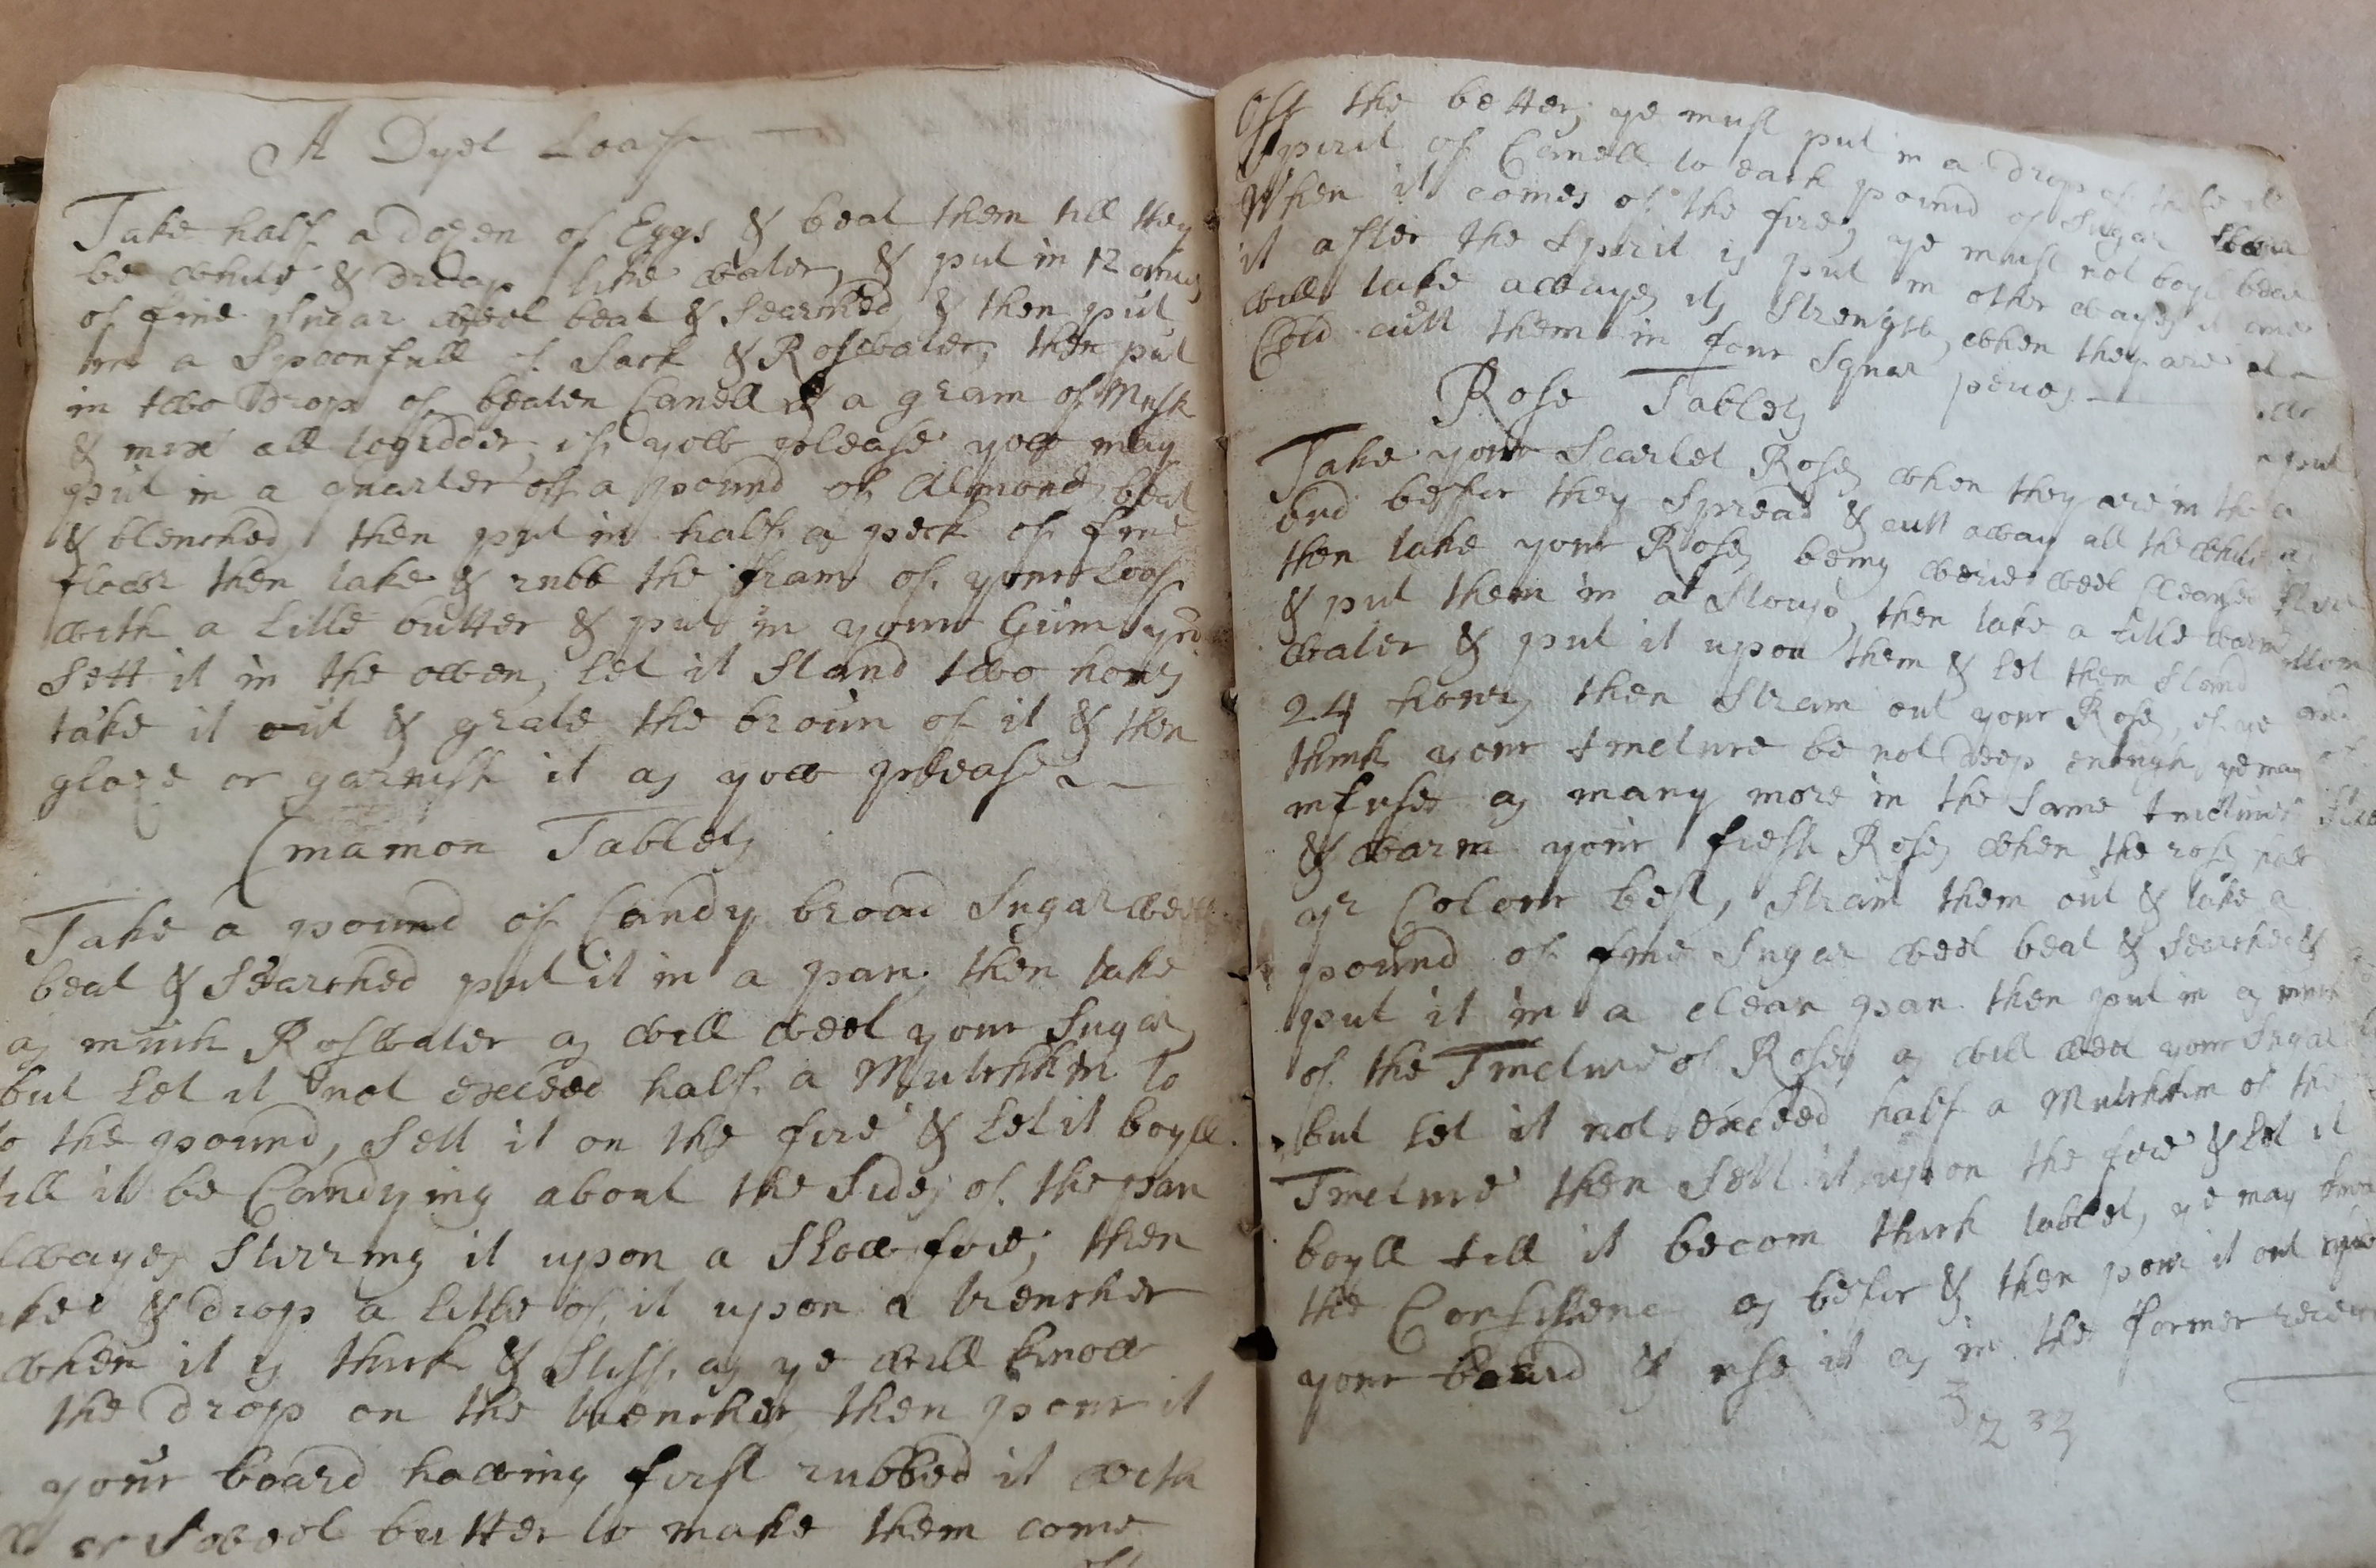 A Dyet Loaf
Take half a dozen of Eggs & beat them till they
be white & drop like water, & put in 12 ounces
of fine Sugar weel beat & Searched & then put
in a Spoonfull of Sack & Rosewater, then put
in two Drop of beaten Canell & a grain of Musk
& mix all togidder, if yow please yow may
put in a quarter off a pound of Almonds beat
& blenched, then put in half a peck of fine
flowr then take & rubb the fram of your Loaf
with a Litle butter & put in your Gum
Sett it in the owen, Let it Stand two hours
take it out & grate the broun of it & then
glaze or garnish it as yow please
Cinamon Tablets
Take a pound of Candy broad Sugar weel
beat & Searched put it in a pan, then take
as much Roswater as will weet your Sugar
but Let it not exceed half a Mutchkin to
to the pound, Sett it on the fire & Let it boyll
till it be Candying about the Sides of the pan
alwayes Stirring it upon a Slow fire, then
take & drop a Litle of it upon a trencher
when it is thick & Stiff as ye will know
the drop on the trencher, then pour it
your board hawing first rubbed it with
or Sweet butter to make them come
Off the better, ye must put in a drop of
Spirit of Canell to each pound of Sugar
When it comes of the fire, ye must not boyl
it after the Spirit is put in other wayes it
will take awaye its Strength, when they are
Cold cutt them in four Squar peices
Rose Tablets
Take your Scarlet Roses when they are in the
bud beffor they Spread & cutt away all the white
then take your Roses being werie weel Cleansed
& put them in a Stoup, then take a Litle warm
water & put it upon them & Let them Stand
24 hours, then Strain out your Roses, if ye
think your tincture be not Deep enough, ye may
infuse as many more in the Same tincture
& warm your fresh Roses when the roses hav
yr Colour best, Strain them out & take a
pound of fine Sugar weel beat & Searched &
put it in a clean pan then put in as much
of the Tincture of Roses as will weet your Sugar
but Let it not exceed half a Mutchkin of the
Tincture then Sett it upon the fire & Let it
boyll till it becom thick tablet, ye may know
the Consistence as befor & then pour it out upon
your board & use it as in the former